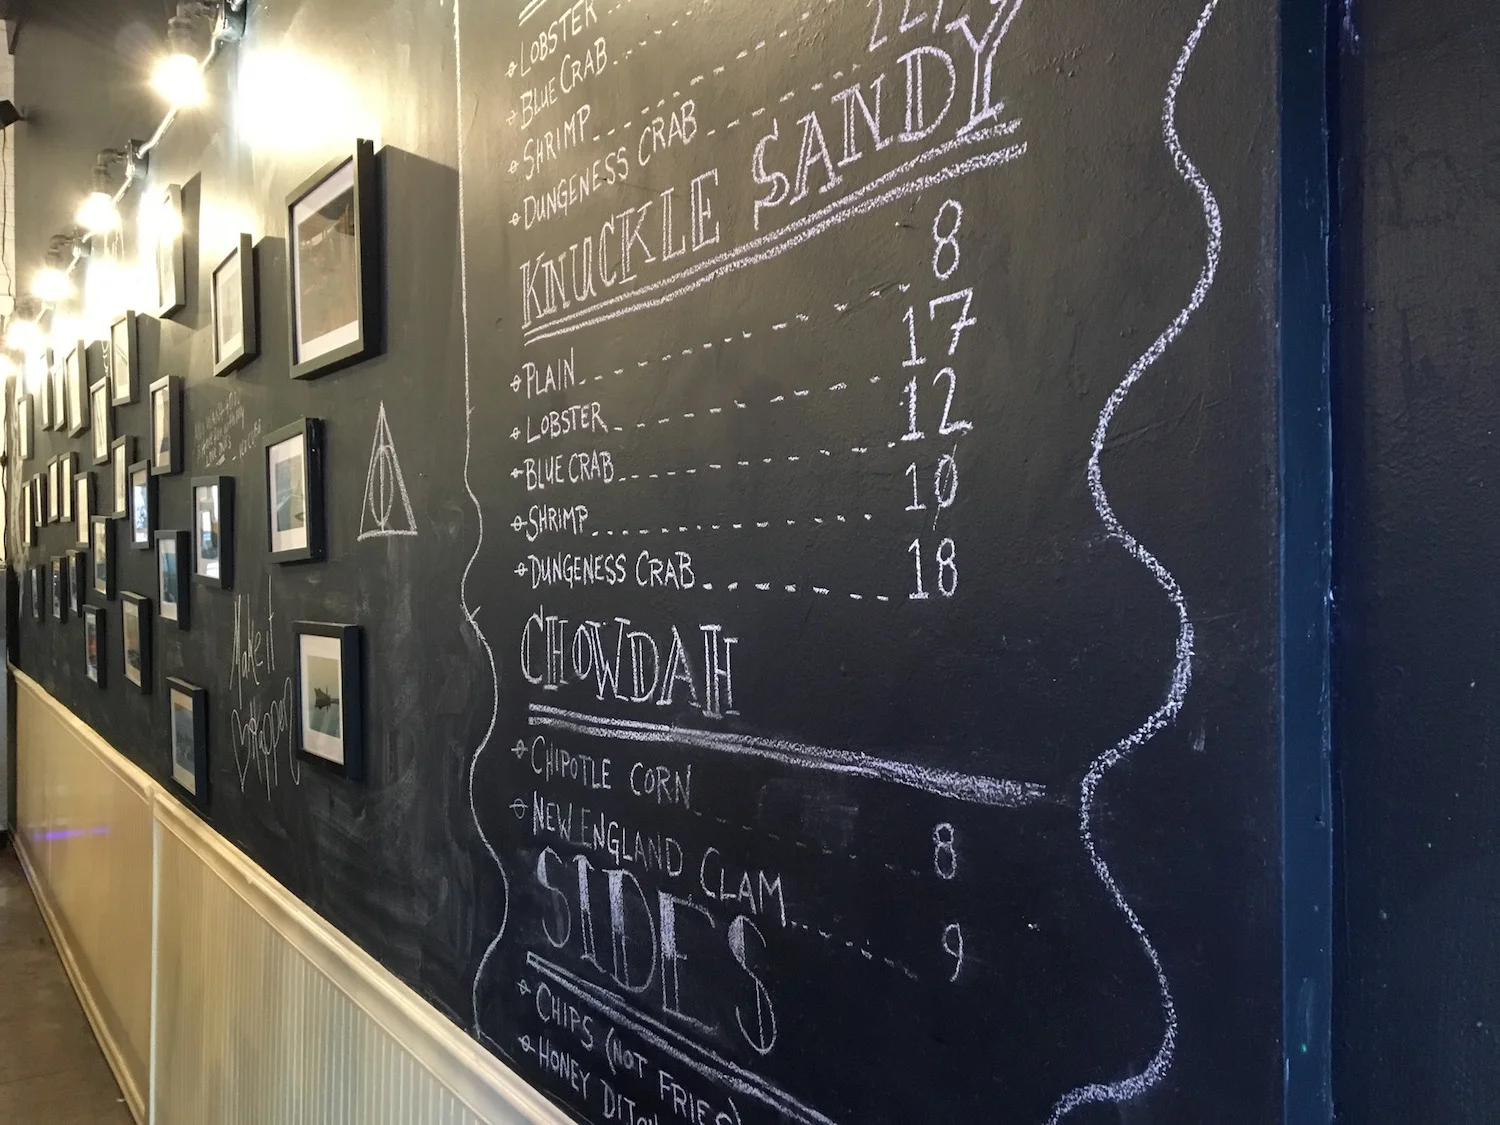 LOBSTER
BLUE CRAB
SHRIMP
DUNGENESS CRAB
KNUCKLE SANDY
PLAIN 8
LOBSTER 17
BLUE CRAB 12
SHRIMP 10
DUNGENESS CRAB 18
CHOWDAH
CHIPOTLE CORN 8
NEW ENGLAND CLAM 9
SIDES
CHIPS (NOT FRIES)
HONEY
Make it
Happen